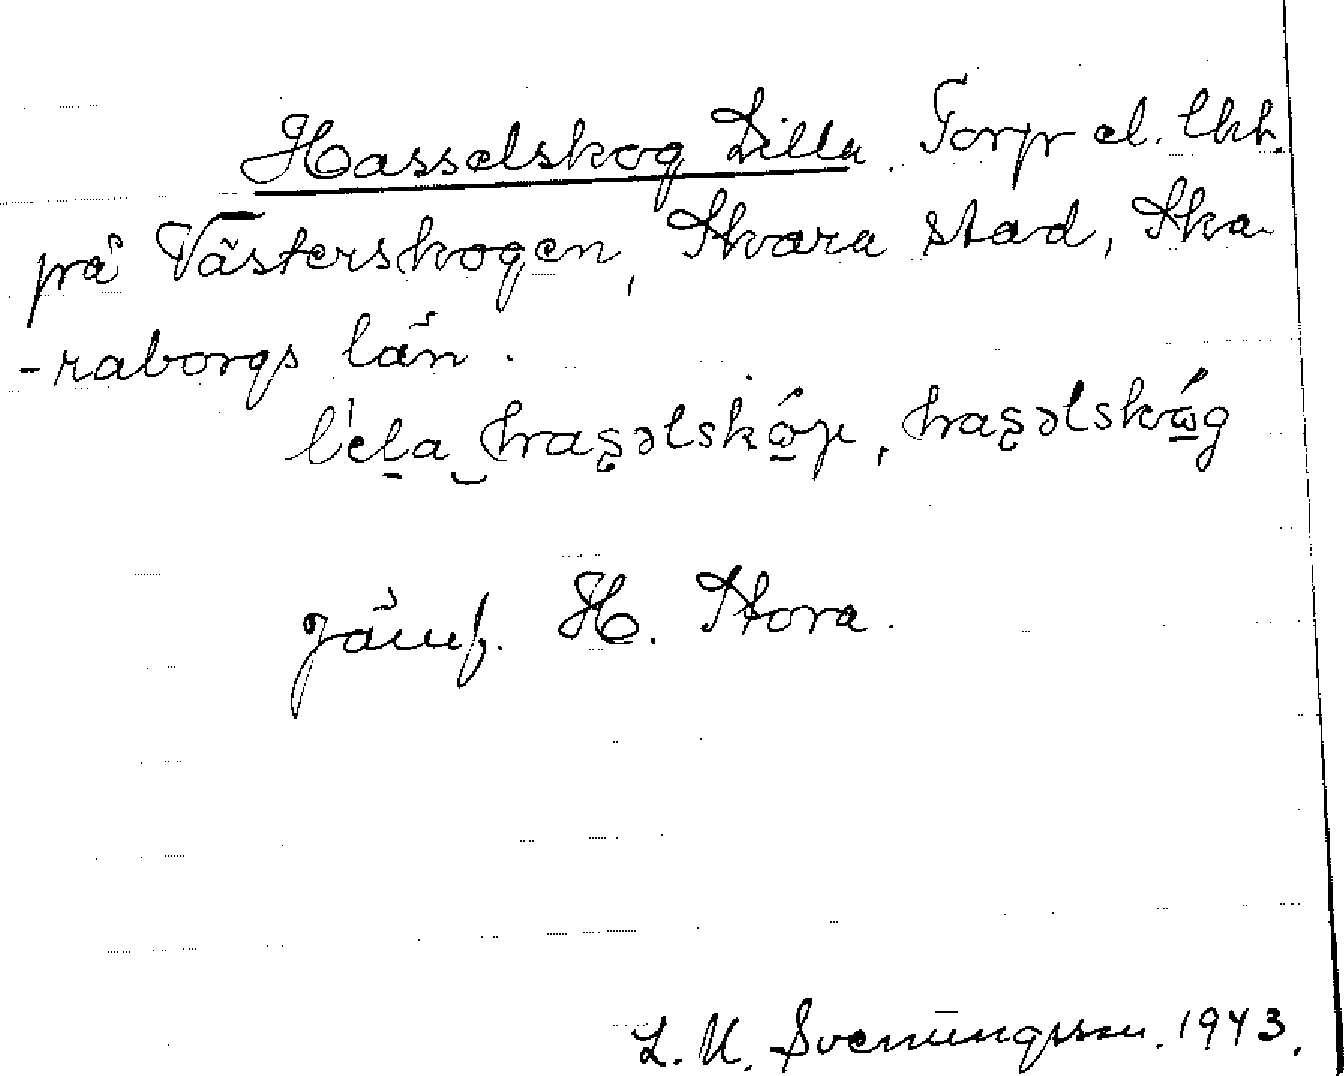 Hasselskog Lilla. Torp el. lht.
på Västerskogen, Skara stad, Ska-
-raborgs län.
lela hasəlskóg, hasəlskóg
Jämf. H. Stora.
L. M. Svenungsson. 1943.